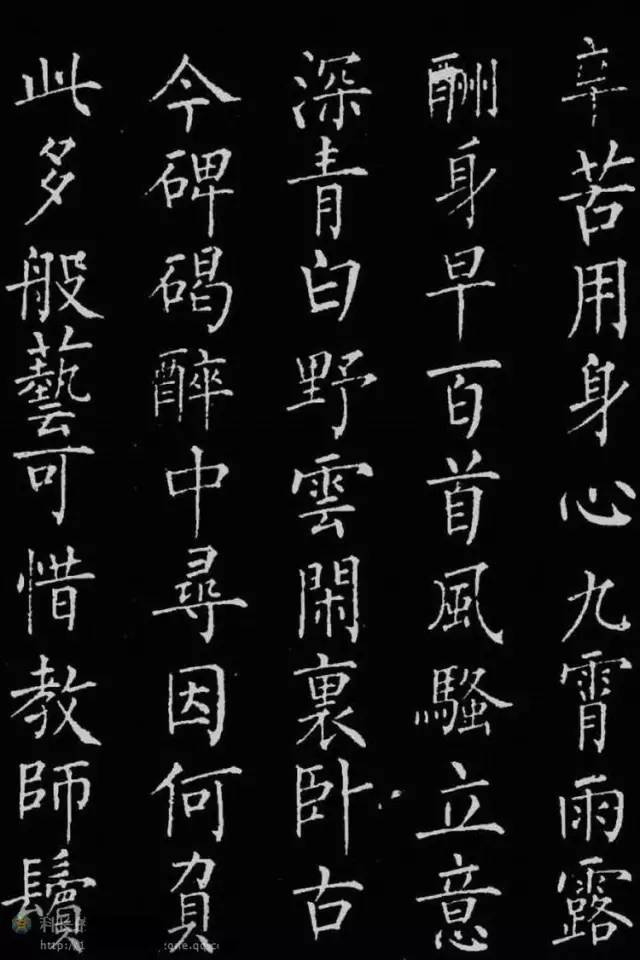 辛苦用身心九霄雨露
酬身早百首風騷立意
深青白野雲閑裏臥古
今碑碣醉中尋因何負
此多般藝可惜教師鬢